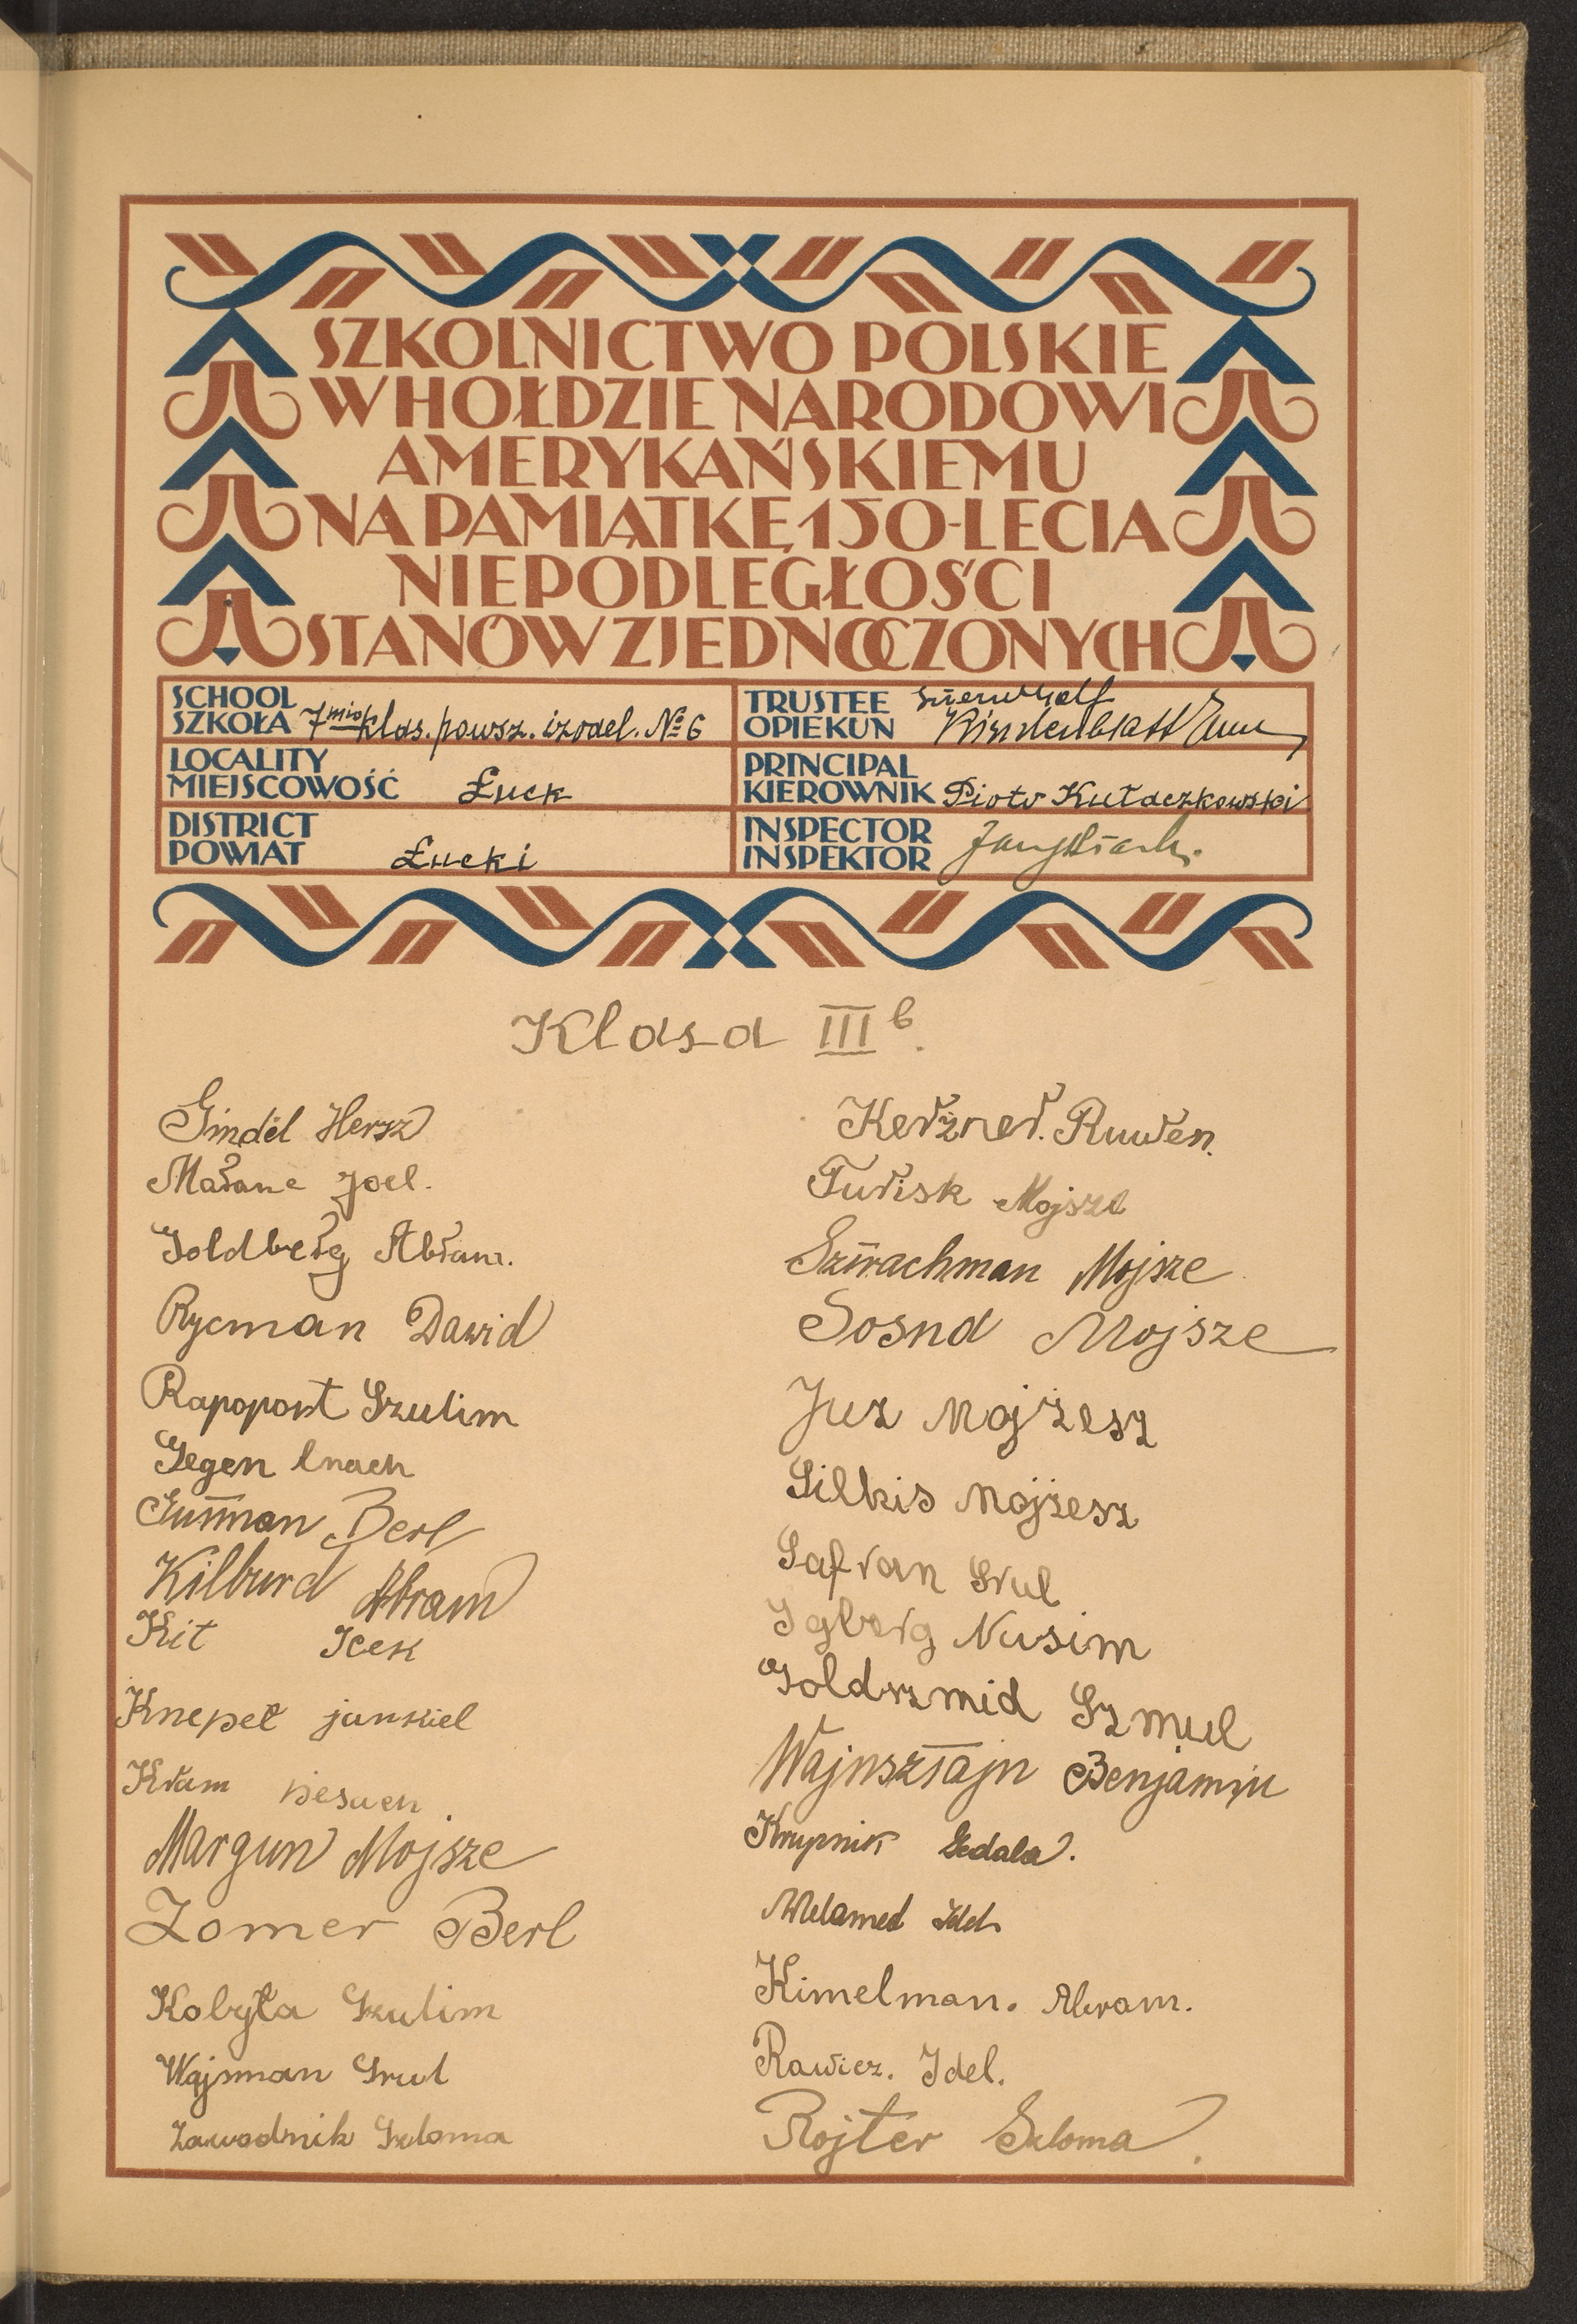 SZKOLNICTWO POLSKIE
W HOŁDZIE NARODOWI
AMERYKAŃSKIEMU
NA PAMIĄTKĘ 150-LECIA
NIEPODLEGŁOŚCI
STANÓW ZJEDNOCZONYCH
SCHOOL
SZKOŁA 7mio klas. powsz. izrael. № 6
TRUSTEE
OPIEKUN Kindenblatt
LOCALITY
MIEJSCOWOŚĆ Łuck
PRINCIPAL
KIEROWNIK Piotr Kułaczkowski
DISTRICT
POWIAT Łucki
INSPECTOR
INSPEKTOR
Klasa III b.
Gindel Hersz
Marane Joel.
Goldberg Abram.
Rycman Dawid
Rapoport Szulim
Gegen Enach
Guzman Berl
Kilburd Abram
Kit Icek
Kneper jankiel
Kram pesach.
Margun Mojsze
Zomer Berl
Kobyła Szulim
Wajsman Srul
Zawodnik Szloma
Kerżner. Ruwen.
Turisk Mojsze
Sztrachman Mojsze
Sosna Mojsze
Juz Mojżesz
Silkis Mojżesz
Safran Srul
Igberg Nusim
Goldszmid Szmul
Wajnsztajn Benjamin
Krupnik Gedala.
Melamed Idel
Kimelman. Abram.
Rawicz. Idel.
Rojter Szloma.